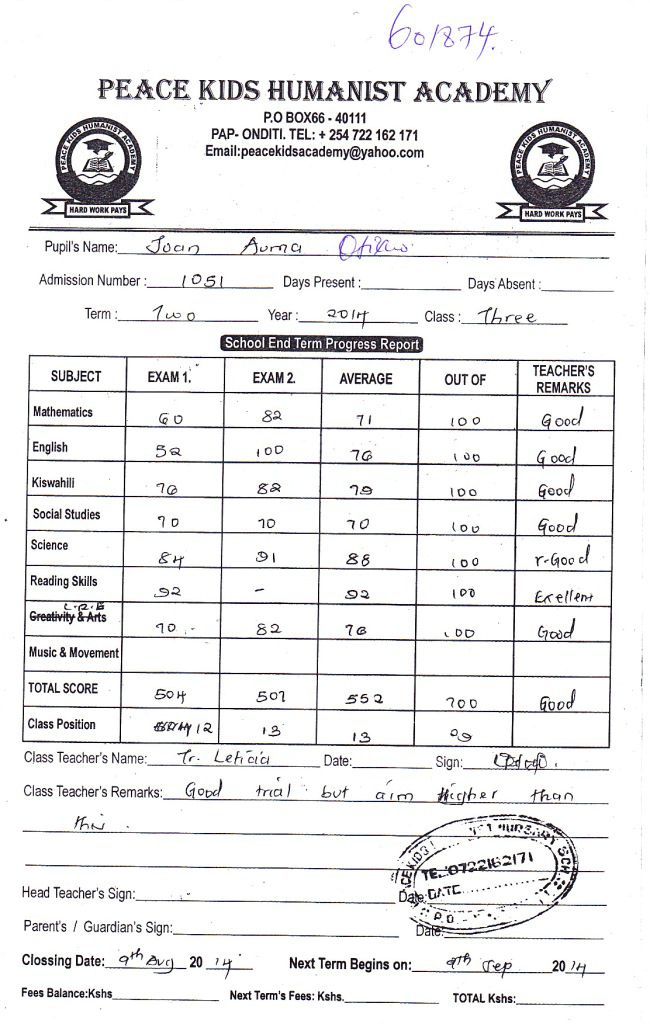 601874.
PEACE KIDS HUMANIST ACADEMY
P.O BOX66 - 40111
PAP- ONDITI. TEL: + 254 722 162 171
Email:peacekidsacademy@yahoo.com
PEACE KIDS HUMANIST ACADEMY
HARD WORK PAYS
PEACE KIDS HUMANIST ACADEMY
HARD WORK PAYS
Pupil's Name: Joan Auma Otieno
Admission Number : 1051 Days Present : Days Absent :
Term : Two Year : 2014 Class : Three
School End Term Progress Report
SUBJECT EXAM 1. EXAM 2. AVERAGE OUT OF TEACHER'S REMARKS
Mathematics 60 82 71 100 Good
English 52 100 76 100 Good
Kiswahili 76 82 79 100 Good
Social Studies 70 70 70 100 Good
Science 84 91 88 100 V-Good
Reading Skills 92 - 92 100 Exellent
L.R.E
Creativity & Arts 70 82 76 100 Good
Music & Movement
TOTAL SCORE 504 507 552 700 Good
Class Position 12 13 13 09
Class Teacher's Name: Tr. Leticia Date: Sign:
Class Teacher's Remarks: Good trial but aim Higher than
this.
TEL.0722162171
DATE
P.O.
Head Teacher's Sign: Date:
Parent's / Guardian's Sign: Date:
Clossing Date: 9th Aug 20 14 Next Term Begins on: 9th Sep 20 14
Fees Balance:Kshs Next Term's Fees: Kshs. TOTAL Kshs: